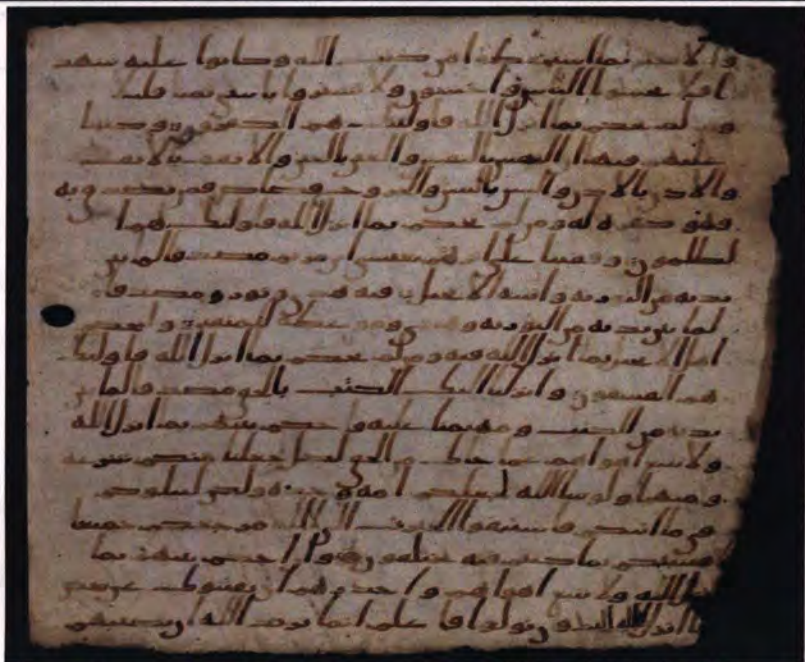 والاحبر بما استحفظوا من كتب الله وكانوا عليه شهد
ا فلا تخشوا الناس واخشون ولا تشتروا بايتي ثمنا قليلا
ومن لم يحكم بما انزل الله فاولئك هم الكفرون وكتبنا
عليهم فيها ان النفس بالنفس والعين بالعين والانف بالانف
والاذن بالاذن والسن بالسن والجروح قصاص فمن تصدق به
فهو كفرة له ومن لم يحكم بما انزل الله فاولئك هم ا
لظلمون وقفينا على اثرهم بعيسى ابن مريم مصدقا لما بين
يديه من التوريه واتينه الانجيل فيه هدى ونور ومصدقا
لما بين يديه من التوريه وهدى وموعظة للمتقين وليحكم
اهل الانجيل بما انزل الله فيه ومن لم يحكم بما انزل الله فاولئك
هم الفسقون وانزلنا اليك الكتب بالحق مصدقا لما بين
يديه من الكتب ومهيمنا عليه فاحكم بينهم بما انزل الله
ولا تتبع اهواهم عما جاك من الحق لكل جعلنا منكم شرعه
ومنهجا ولو شا الله لجعلكم امة وحدة ولكن ليبلوكم
في ما اتيكم فاستبقوا الخيرت الى الله مرجعكم جميعا
فينبئكم بما كنتم فيه تختلفون وان احكم بينهم بما
انزل الله ولا تتبع اهواهم واحذرهم ان يفتنوك عن بعض
ما انزل الله اليك فان تولوا فاعلم انما يريد الله ان يصيبهم